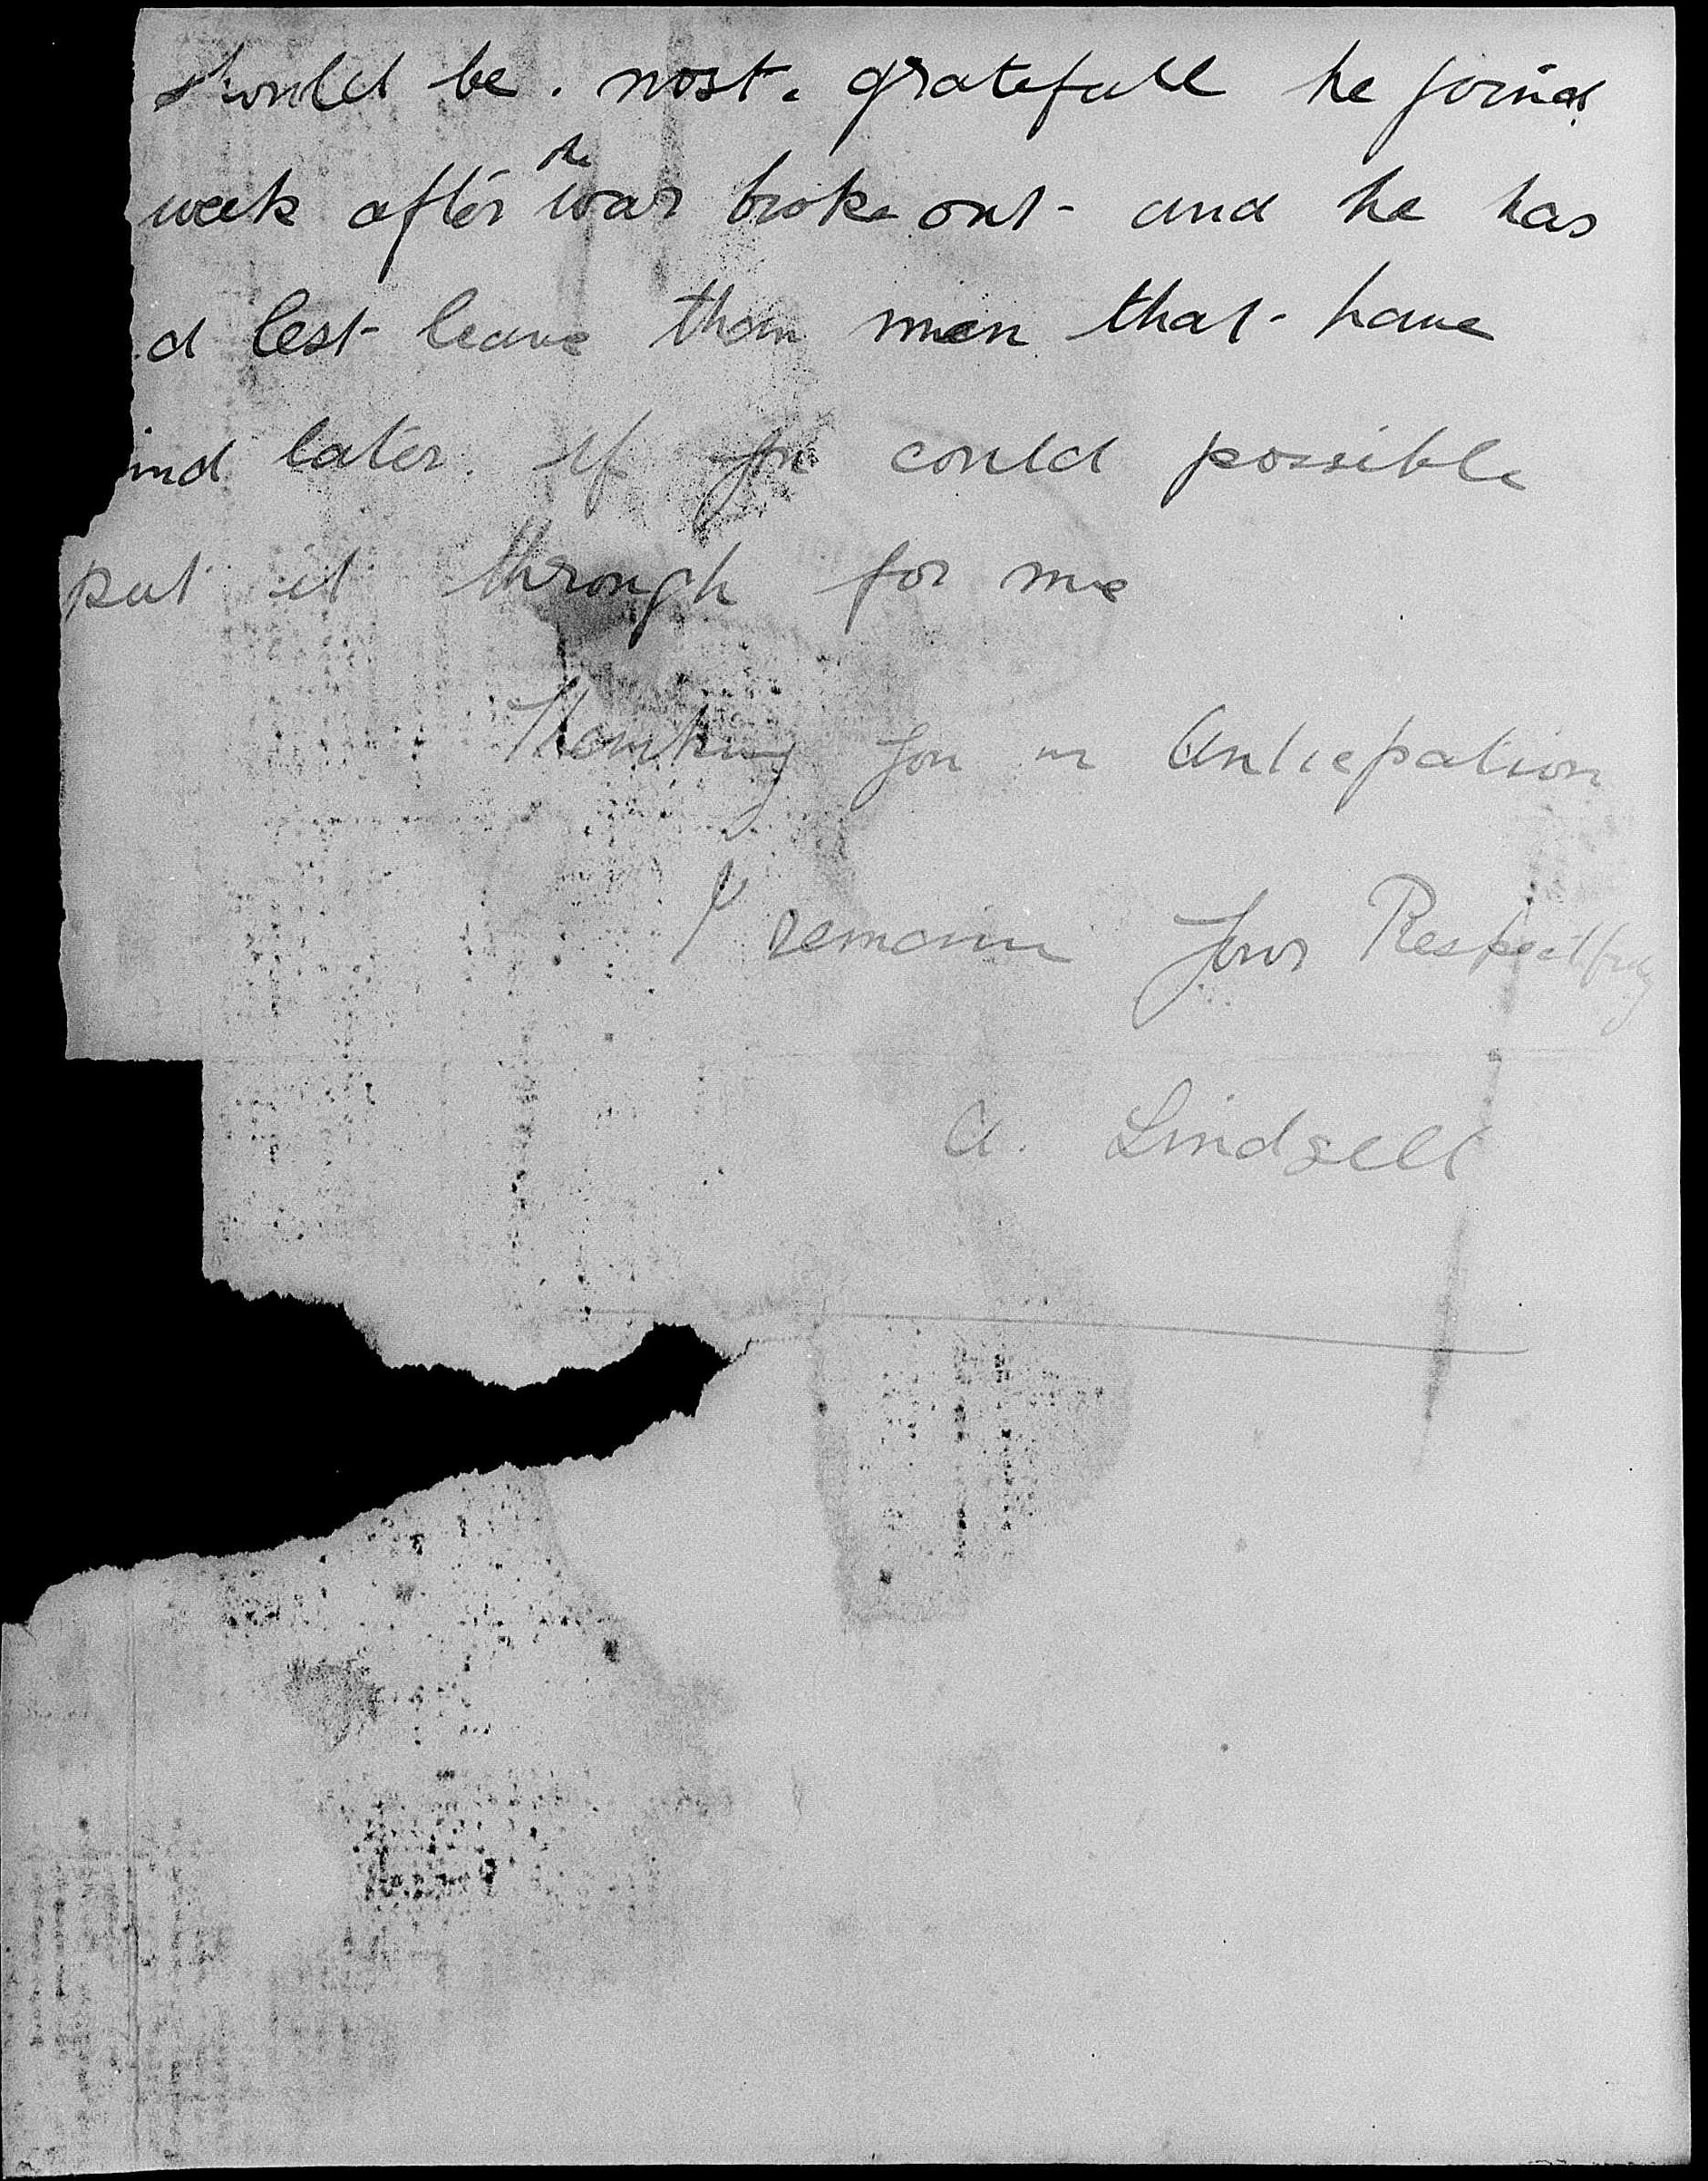 should be . most . gratefull he joind
week after the war broke out - and he has
d lest leave than men that - have
ind later. if you could possible
put it through for me
Thanking you in Anticpation
I remain yours Respectfuly
A. Lindsell